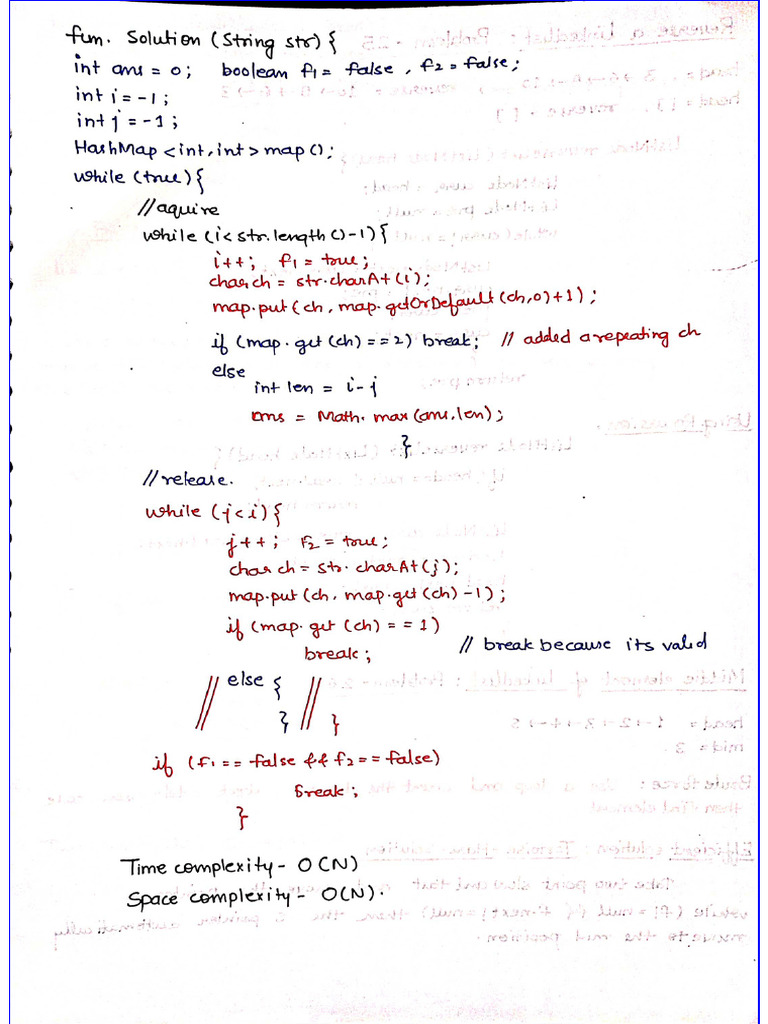 fun. Solution (String str) {
int ans = 0; boolean f1 = false, f2 = false;
int i = -1;
int j = -1;
HashMap <int, int> map ();
while (true) {
// aquire
while (i < str.length () -1) {
i++; f1 = true;
char ch = str.charAt (i);
map.put (ch, map.getOrDefault (ch, 0) +1);
if (map.get (ch) == 2) break; // added a repeating ch
else
int len = i - j
ans = Math.max (ans, len);
}
// release.
while (j < i) {
j++; F2 = true;
char ch = str.charAt (j);
map.put (ch, map.get (ch) -1);
if (map.get (ch) == 1)
break; // break because its valid
// else { //
} }
if (f1 == false && f2 == false)
break;
}
Time complexity - O(N)
Space complexity - O(N).